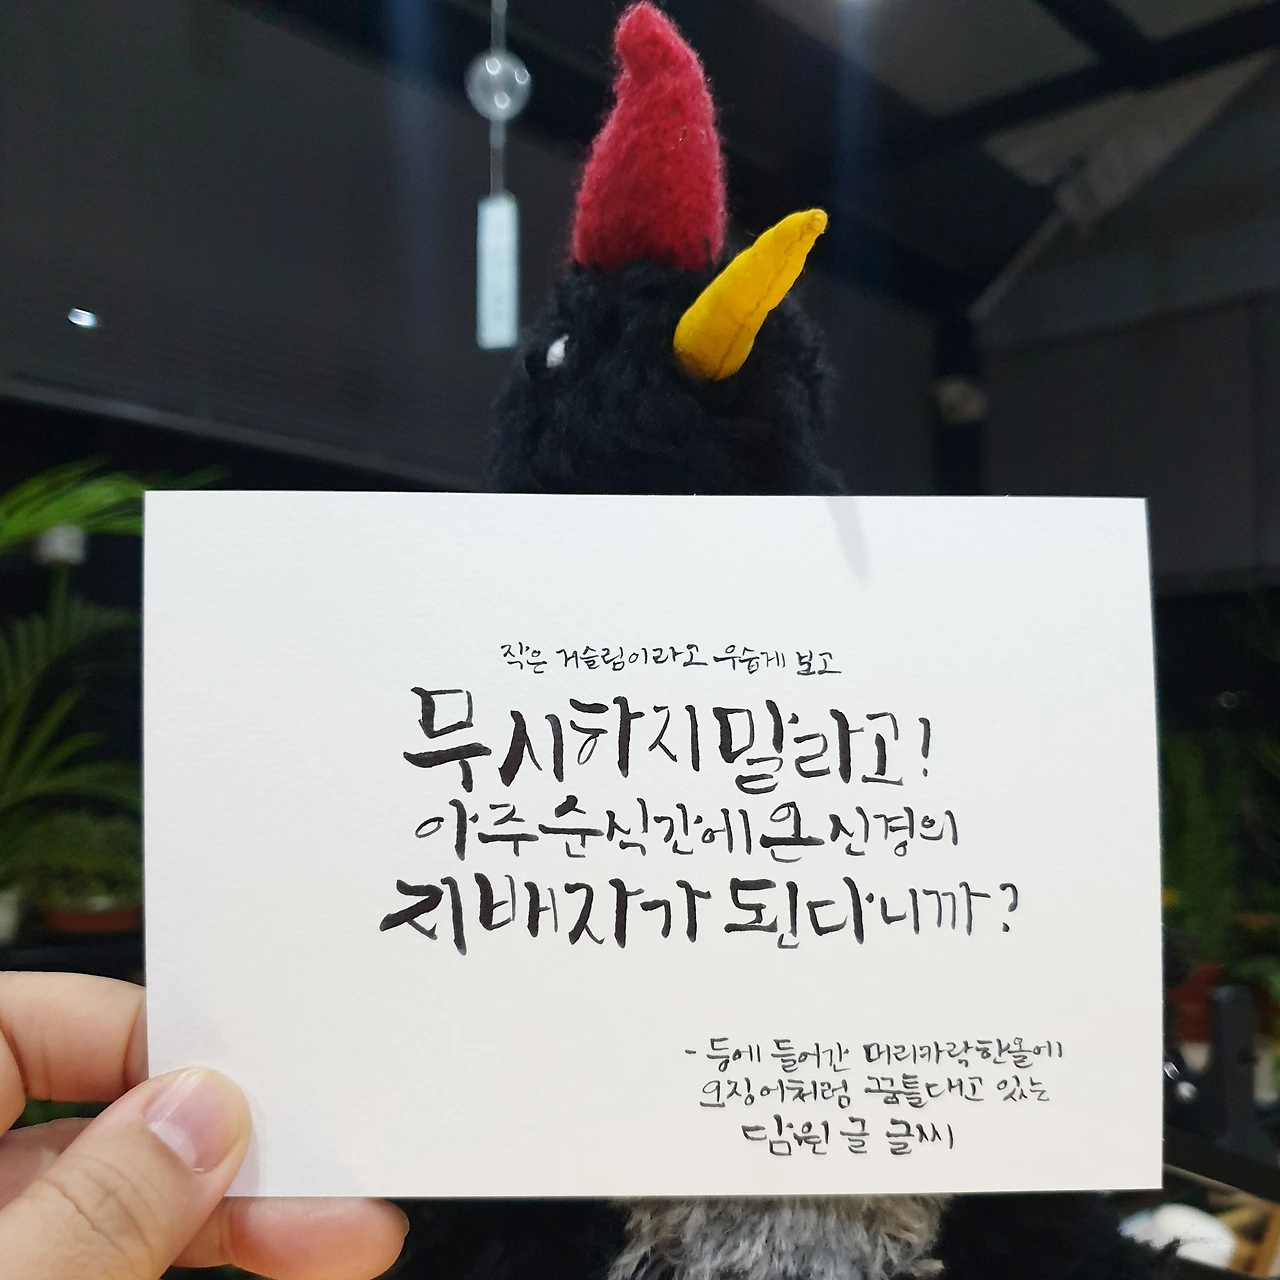 작은 거슬림이라고 우습게 보고
무시하지말라고!
아주 순식간에 온 신경의
지배자가 된다니까?
- 등에 들어간 머리카락 한올에
오징어처럼 꿈틀대고 있는
담원 글 글씨